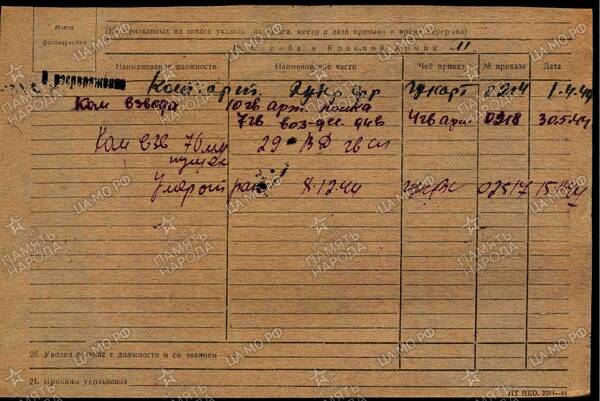 Место
фотокарточки
(Призванных из запаса указать из запаса, место и дата призыва и время перерыва)
Служба в Красной Армии 11
Наименование должности Наименование части Чей приказ № приказа Дата
В распоряжение Ком. арт. 2 укр фр 0214 1.4.44
Ком взвода 10 гв арт. полка
7 гв воз-дес див 4 гв арм. 0318 30.5.44
Ком взв 76 мм 29 ВД гв сп
пушек
Умер от ран 8.12.44 02517
20. Уволен в запас с должности и со званием
21. Причины увольнения
ПАМЯТЬ НАРОДА
ЦАМО.РФ